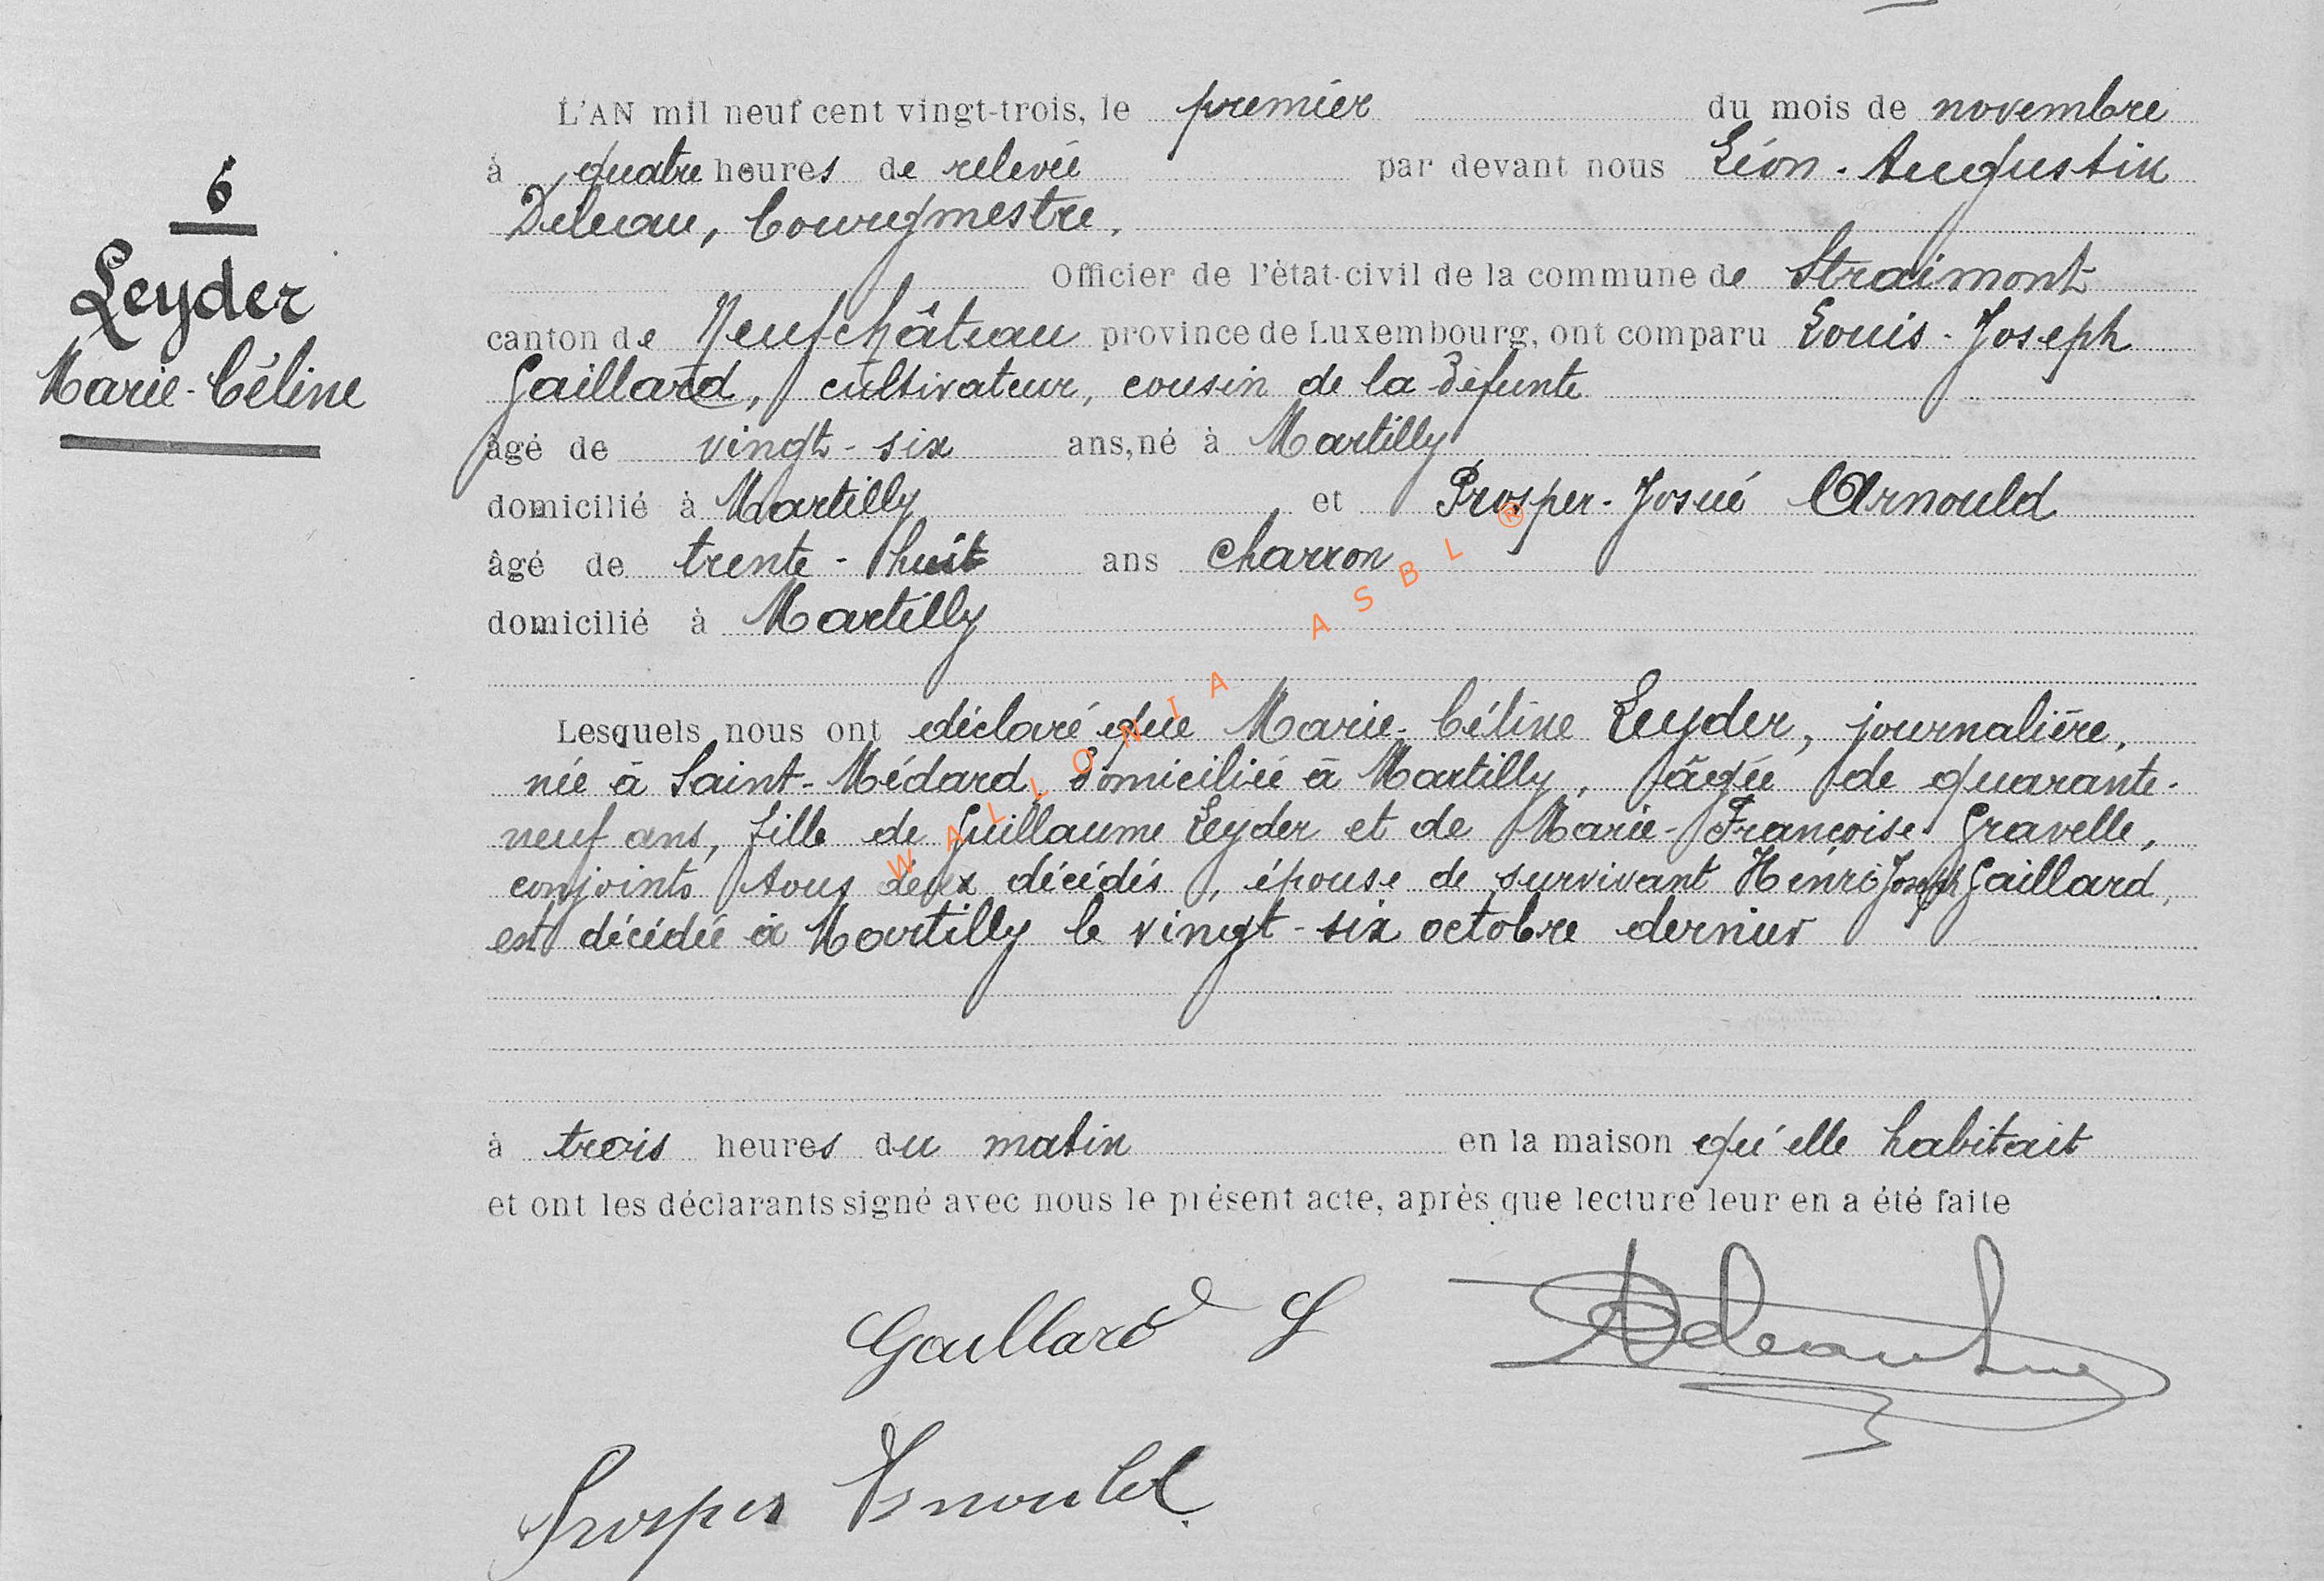 6
Leyder
Marie-Céline
L'AN mil neuf cent vingt-trois, le premier du mois de novembre
à quatre heures de relevée par devant nous Léon-Augustin
Deleau, bourgmestre,
Officier de l'état-civil de la commune de Straimont
canton de Neufchâteau province de Luxembourg, ont comparu Louis-Joseph
Gaillard, cultivateur, cousin de la défunte
âgé de vingt-six ans, né à Martilly
domicilié à Martilly et Prosper-Josué Arnould
âgé de trente-huit ans charron
domicilié à Martilly
Lesquels nous ont déclaré que Marie-Céline Leyder, journalière,
née à Saint-Médard, domiciliée à Martilly, âgée de quarante-
neuf ans, fille de Guillaume Leyder et de Marie-Françoise Gravelle,
conjoints tous deux décédés, épouse de survivant Henri Joseph Gaillard,
est décédée à Martilly le vingt-six octobre dernier
à trois heures du matin en la maison qu'elle habitait
et ont les déclarants signé avec nous le présent acte, après que lecture leur en a été faite
Gaillard L
Prosper Arnould
WALLONIA ASBL ®